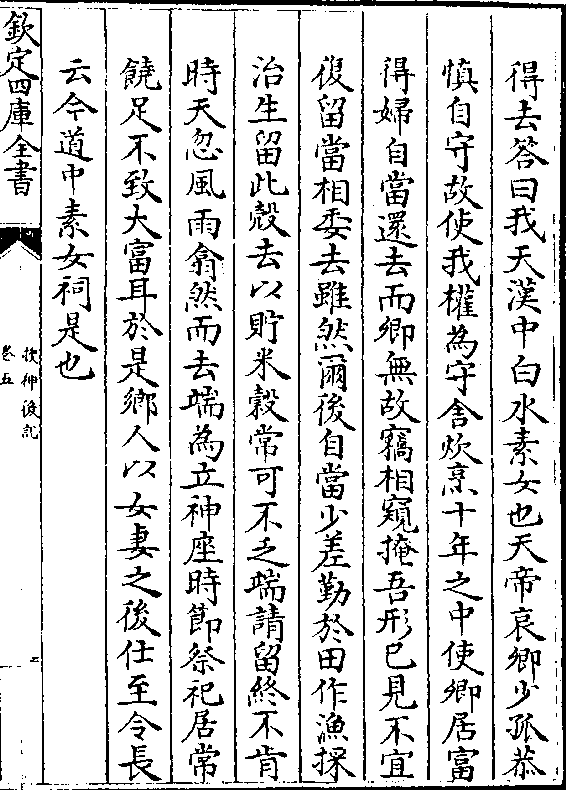 得去答曰我天漢中白水素女也天帝哀卿少孤恭
慎自守故使我權為守舍炊烹十年之中使卿居富
得婦自當還去而卿無故竊相窺掩吾形已見不宜
復留當相委去雖然爾後自當少差勤於田作漁採
治生留此殼去以貯米穀常可不乏端請留終不肯
時天忽風雨翕然而去端為立神座時節祭祀居常
饒足不致大富耳於是鄉人以女妻之後仕至令長
云今道中素女祠是也
欽定四庫全書
搜神後記
卷五
二